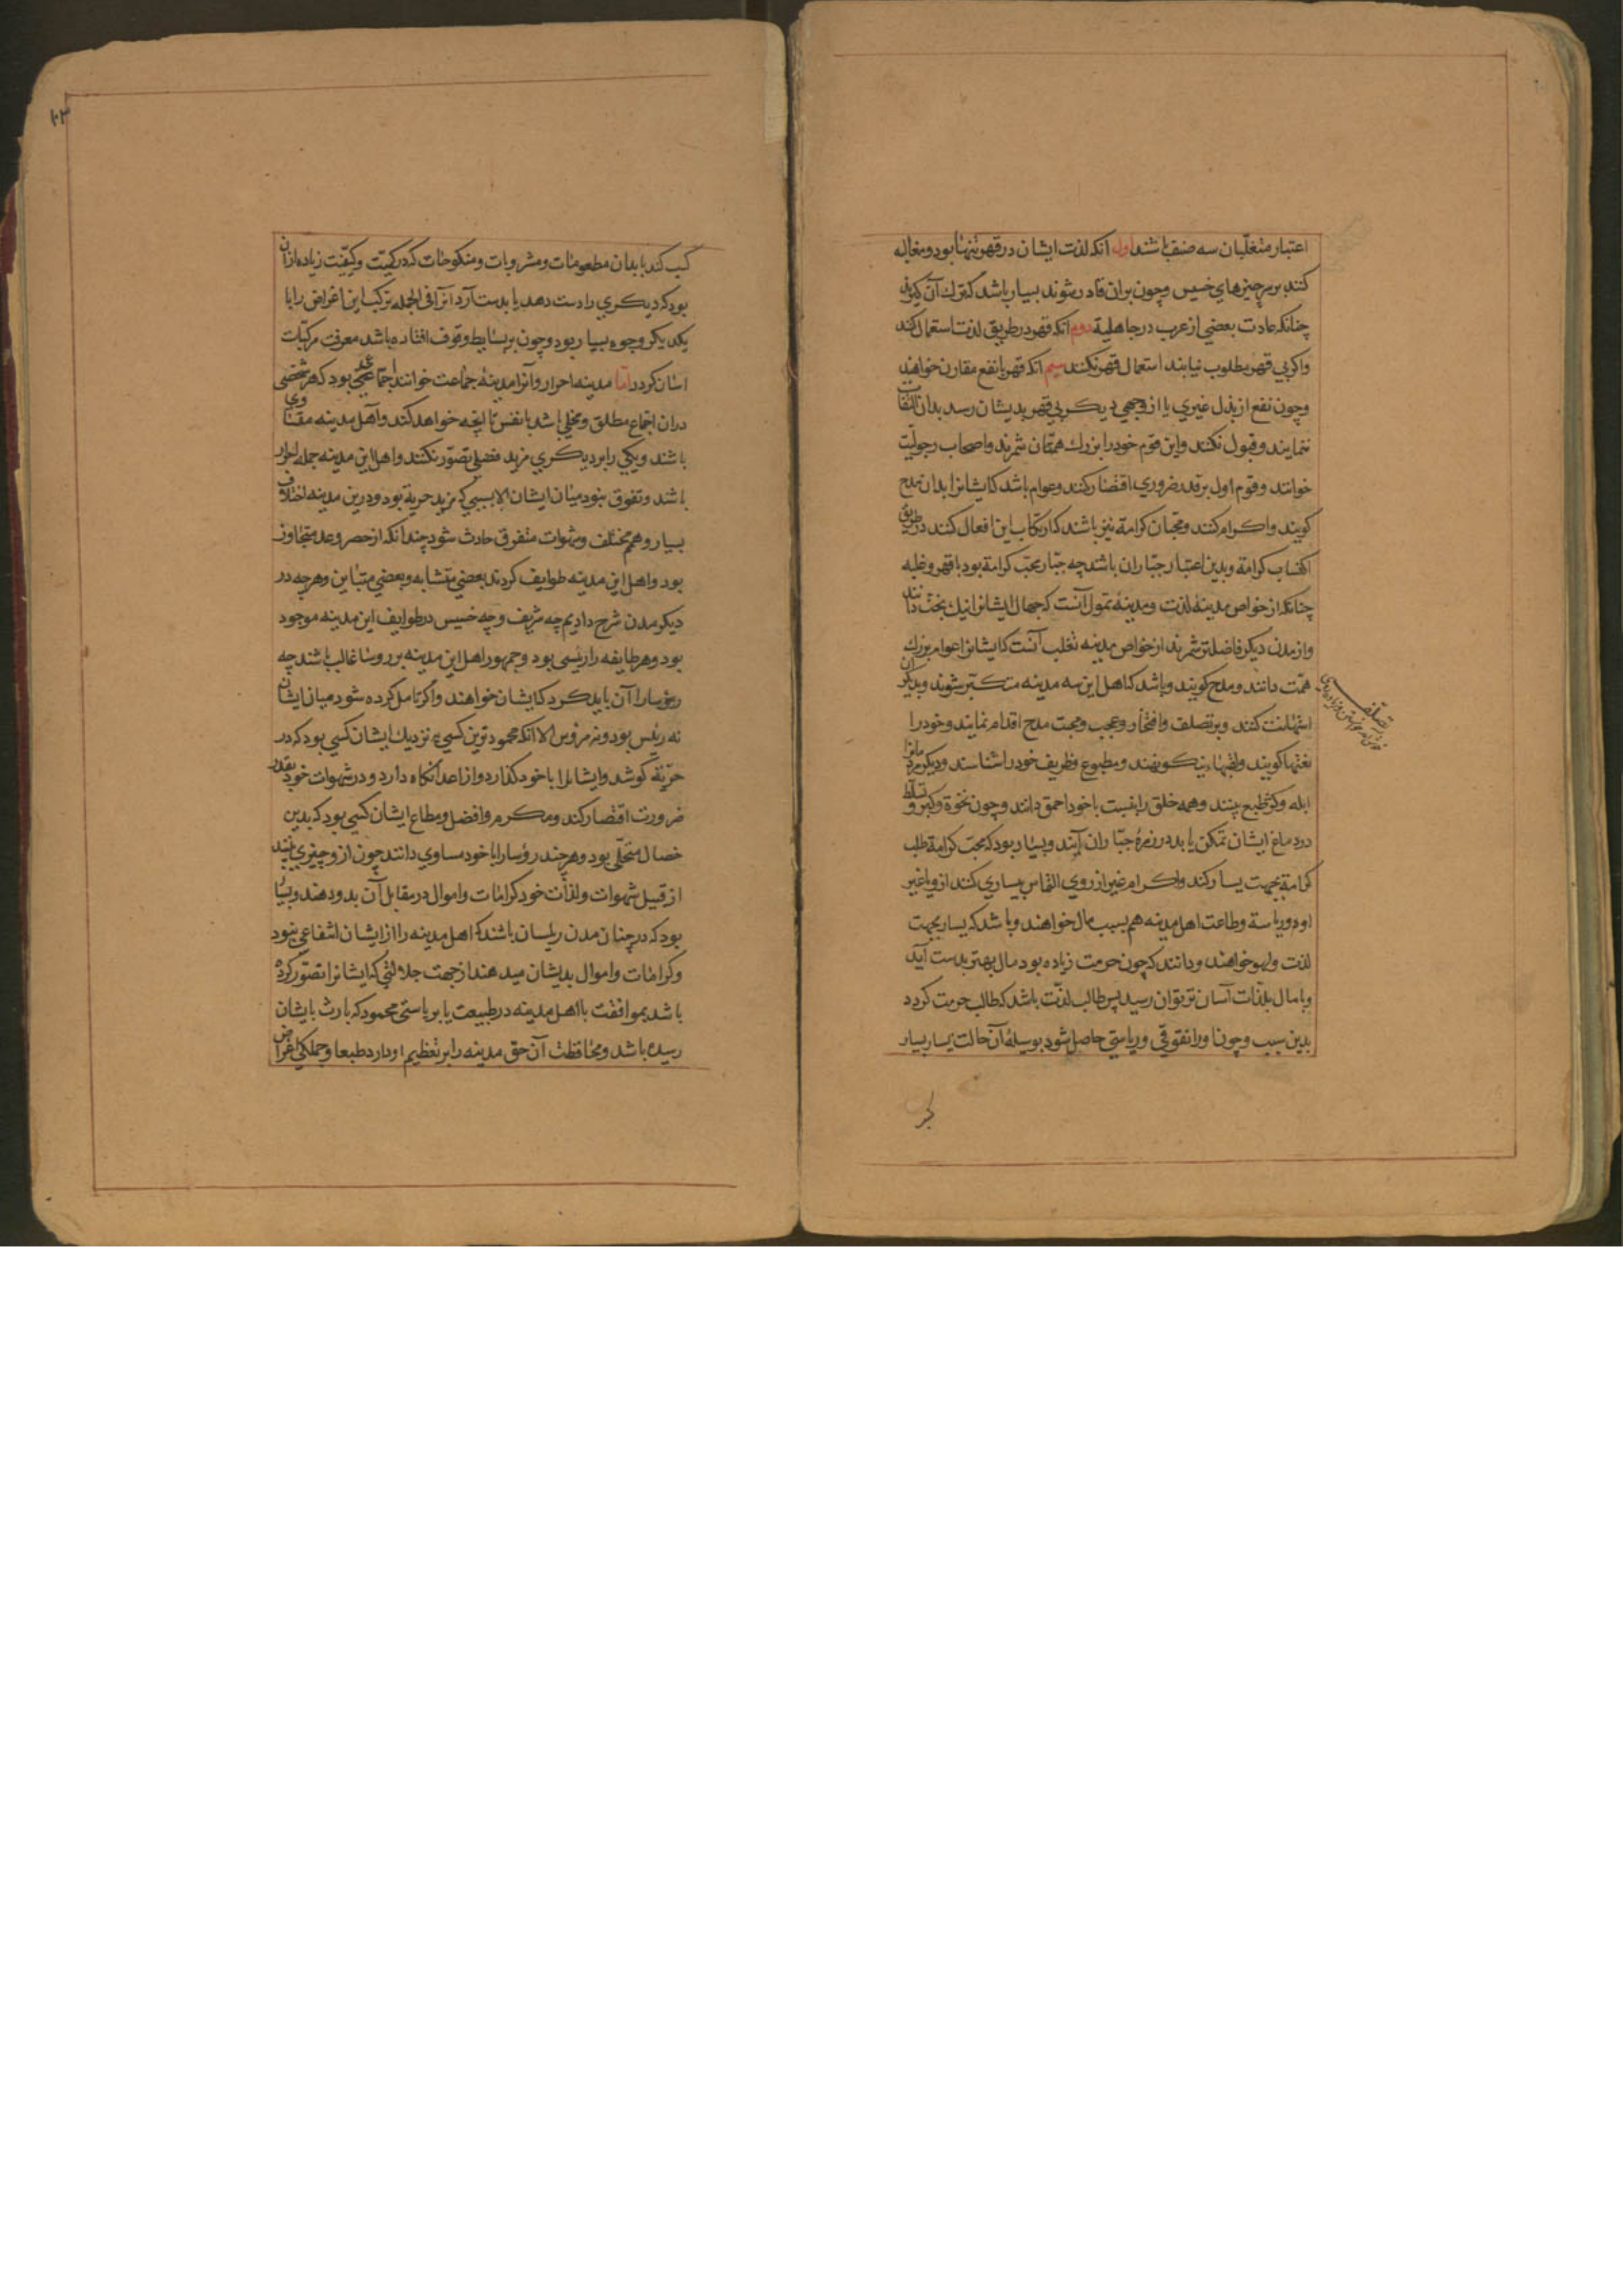 اعتبار متغلّبان سه صنف باشند اول آنکه لذت ایشان در قهر تنها بود و مغالبه
کنند بر سر چیزهای خسیس و چون بران قادر شوند بسیار باشد که ترك آن گیرند
چنانکه عادت بعضی از عرب در جاهلیة دوم آنکه قهر در طریق لذت استعمال کنند
واکر بی قهر مطلوب نیابند استعمال قهر نکنند سیم آنکه قهر با نفع مقارن خواهند
وچون نفع از بذل غیری یا از وجهی دیکر بی قهر بدیشان رسد بدان التفات
ننمایند وقبول نکنند واین قوم خود را بزرك همتان شمرند واصحاب رجولیّت
خوانند وقوم اول بر قدر ضروری اقتصار کنند وعوام باشد که ایشانرا بدان مدح
کویند واکرام کنند ومحبّان کرامة نیز باشند که ارتکاب این افعال کنند در طریق
اکتساب کرامة وبدین اعتبار جبّاران باشند چه جبّار محبّ کرامة بود با قهر وغلبه
چنانکه از خواص مدینهٔ لذت ومدینهٔ تمول آنست که جهال ایشانرا نیك بخت دانند
واز مدن دیکر فاضلتر شمرند از خواص مدینه تغلب آنست که ایشانرا عوام بزرك
همّت دانند ومدح کویند وباشد که اهل این سه مدینه متکبّر شوند وبدیکران
استهانت کنند وبر تصلف وافتخار وعجب ومحبت مدح اقدام نمایند وخود را
لقبها کویند ولقبهاء نیکو نهند ومطبوع وظریف خود را شناسند ودیکر مردمانرا
ابله وکژطبع بینند وهمه خلق را بنسبت با خود احمق دانند وچون نخوة وکبر وتسلّط
در دماغ ایشان تمکن یابد در زمرهٔ جبّاران آیند وبسیار بود که محبّ کرامة طلب
کرامة بجهت یسار کند واکرام غیر از روی التماس یساری کنند ازو یا غیر
او وریاسة وطاعت اهل مدینه هم بسبب مال خواهند وباشد که یسار بجهت
لذت ولهو خواهند ودانند که چون حرمت زیاده بود مال بهتر بدست آید
وبا مال بلذّات آسان تر توان رسید پس طالب لذّت باشد که طالب حرمت کردد
بدین سبب وچون او را تفوقی وریاستی حاصل شود بوسیلهٔ آن حالت یسار بسیار
تصلف
کسب کند تا بدان مطعومات ومشروبات ومنکوحات که در کمیّت وکیفیّت زیاده ازان
بود که دیکری را دست دهد یا بدست آرد آنرا فی الجمله ترکیب این اغراض را با
یکدیکر وجوه بسیار بود وچون بر بسایط وقوف افتاده باشد معرفت مرکّبات
آسان کردد امّا مدینه احرار وآنرا مدینهٔ جماعت خوانند اجتماعی بود که هر شخصی
دران اجتماع مطلق ومخلّی باشد با نفس تا آنچه خواهد کند واهل مدینه متساوی
باشند ویکی را بر دیکری مزید فضلی تصوّر نکنند واهل این مدینه جمله احرار
باشند وتفوق نبود میان ایشان الا بسببی که مزید حریة بود ودرین مدینه اختلاف
بسیار وهمم مختلف وشهوات متفرق حادث شود چندانکه از حصر وعد متجاوز
بود واهل این مدینه طوایف کردند بعضی متشابه وبعضی متباین وهر چه در
دیکر مدن شرح دادیم چه شریف وچه خسیس در طوایف این مدینه موجود
بود وهر طایفه را رئیسی بود وجمهور اهل این مدینه بر روسا غالب باشند چه
رؤسا را آن باید کرد که ایشان خواهند واکر تامل کرده شود میان ایشان
نه رئیس بود ونه مرؤس الا آنکه محمود ترین کسی نزدیك ایشان کسی بود که در
حریّة کوشد وایشانرا با خود کذارد واز اعدا نکاه دارد ودر شهوات خود بقدر
ضرورت اقتصار کند ومکرم وافضل ومطاع ایشان کسی بود که بدین
خصال متحلّی بود وهر چند رؤسا را با خود مساوی دانند چون ازو چیزی بینند
از قبیل شهوات ولذّات خود کرامات واموال در مقابل آن بدو دهند وبسیار
بود که در چنان مدن رئیسان باشند که اهل مدینه را از ایشان انتفاعی نبود
وکرامات واموال بدیشان میدهند از جهت جلالتی که ایشانرا تصوّر کرده
باشد بموافقت با اهل مدینه در طبیعت یا بریاستی محمود که بارث بایشان
رسیده باشد ومحافظت آن حق مدینه را بر تعظیم او دارد طبعا وجملکی اغراض